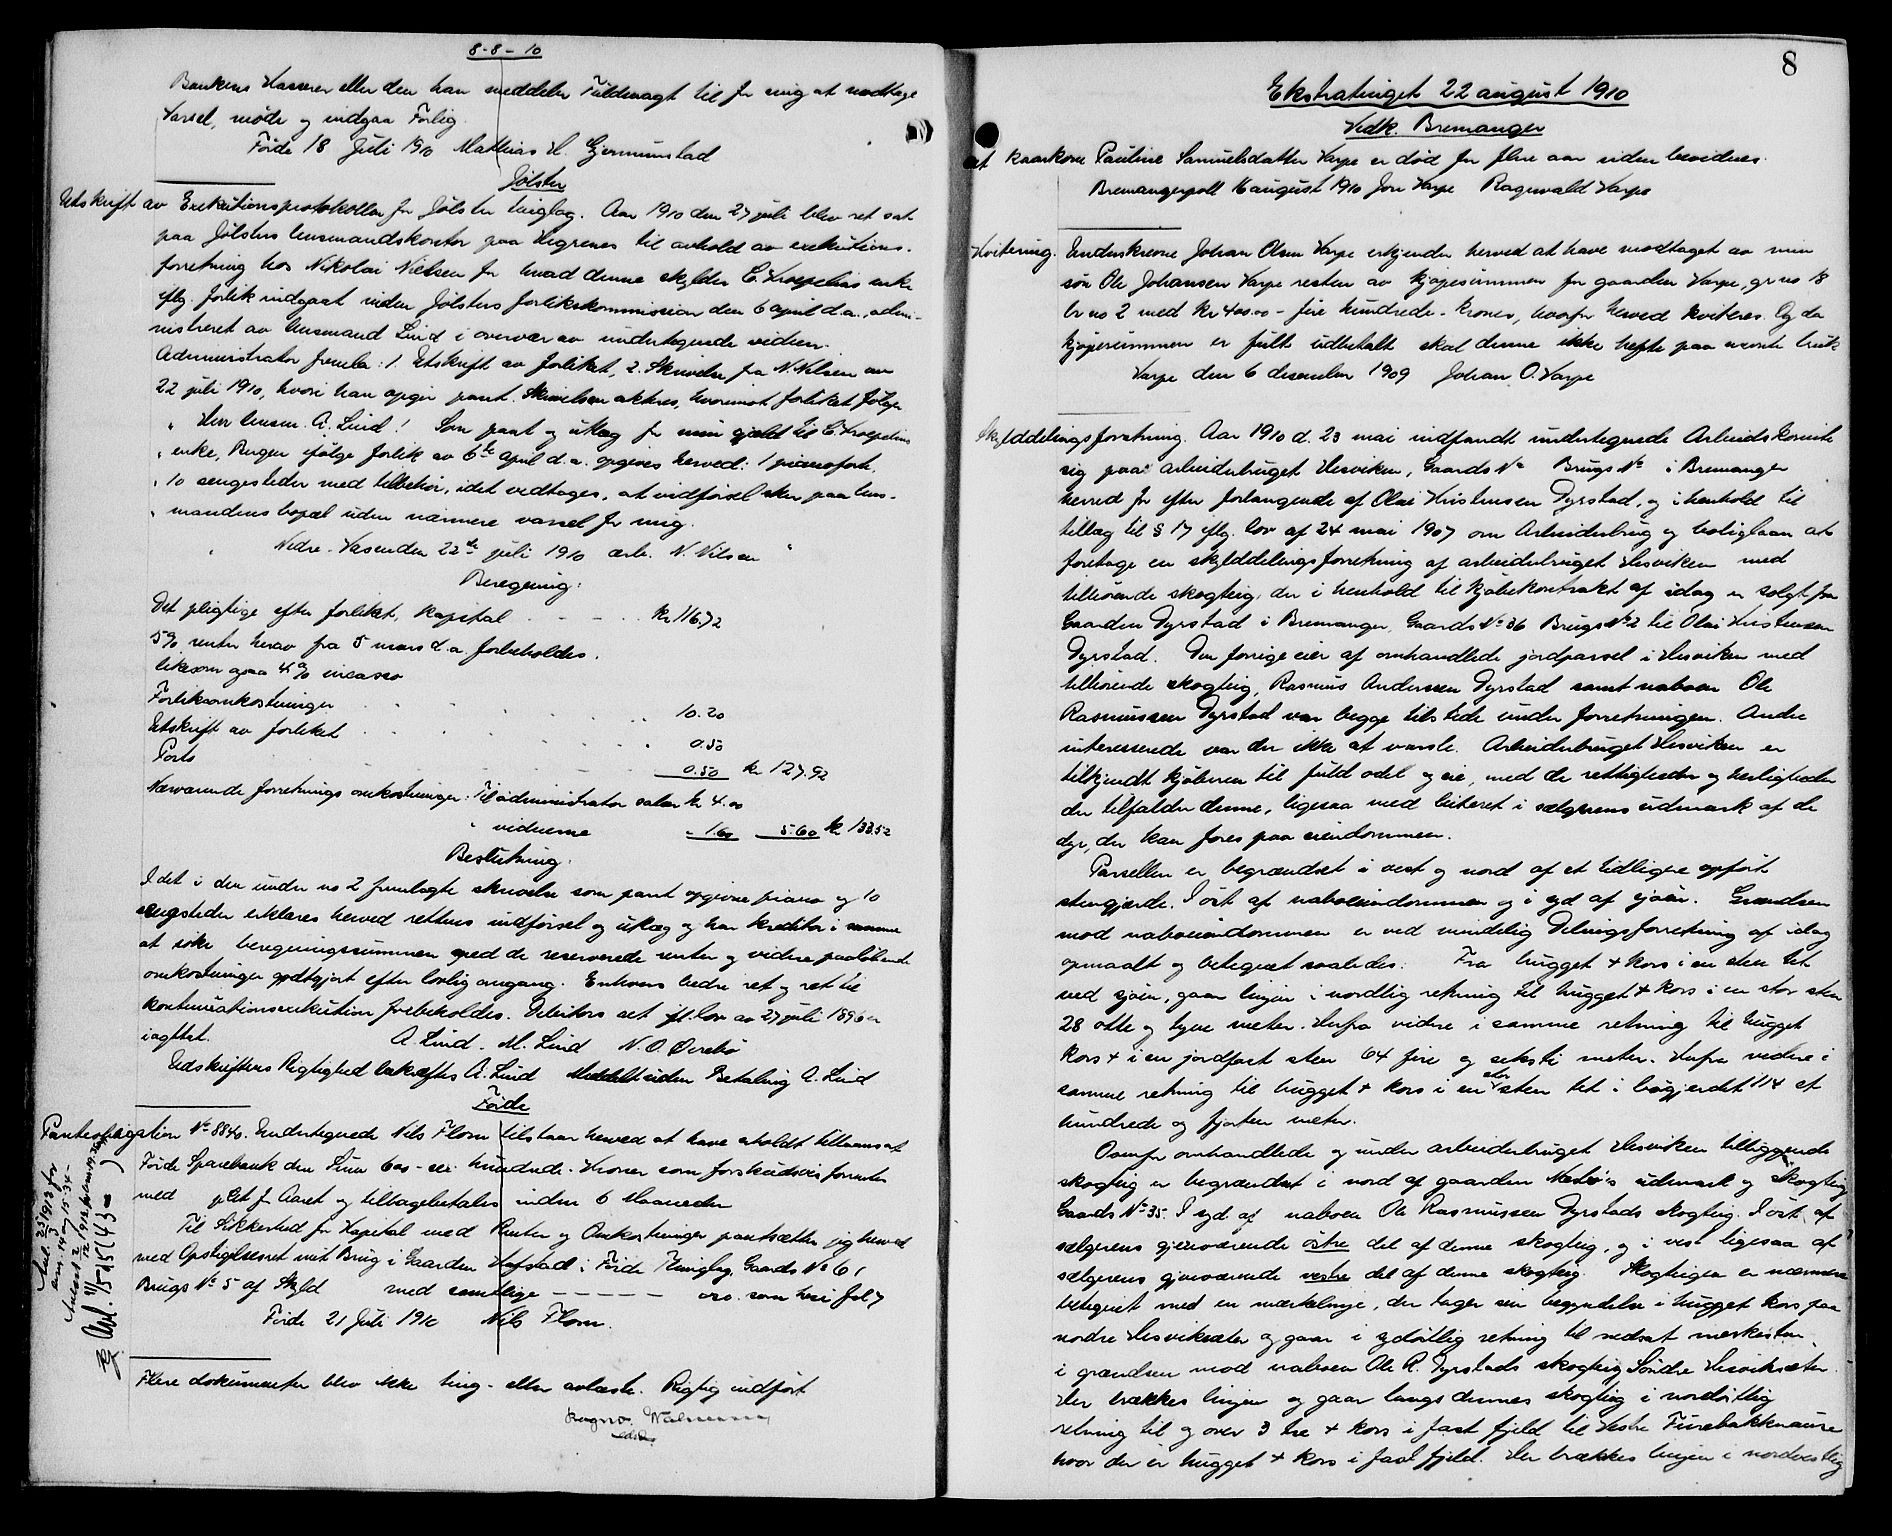 8-8-10
Bankens Kasserer eller den han meddeler Fuldmagt til for mig at modtage
Varsel, møde og indgaa Forlig.
Førde 18 Juli 1910 Mathias H. Gjermunstad
Jølster
Utskrift av Exekutionsprotokollen for Jølster tinglag. Aar 1910 den 27 juli blev ret sat
paa Jølsters lensmandskontor paa Hegrenes til avhold av exekutions-
forretning hos Nikolai Nielsen for hvad denne skylder C. Kroepelins enke
eftg. forlik indgaat under Jølsters forlikskommission den 6 april d.a., admi-
nistreret av lensmand Lind i overvær av undertegnede vidner.
Administrator fremla: 1. Utskrift av forliket, 2. Skrivelse fra N. Nilsen av
22 juli 1910, hvori han opgir pant. Skrivelsen aktes, hvorimot forliket følger
" Herr lensm. A. Lind! Som pant og utlæg for min gjæld til C. Kroepelins
" enke, Bergen ifølge forlik av 6te april d.a. opgives herved: 1 pianoforte,
" 10 sengesteder med tilbehør, idet vedtages, at indførsel sker paa lens-
" mandens bopæl uden nærmere varsel for mig.
" Nedre-Vasenden 22de juli 1910 ærb. N. Nilsen "
Beregning:
Det pligtige efter forliket, kapital kr. 116.72
5% renter herav fra 5 mars d.a. forbeholdes.
likesom ogsaa 4% incasso
Forliksomkostninger 10.20
Utskrift av forliket 0.50
Porto 0.50 kr 127.92
Nærværende forretnings omkostninger: Til administrator salær kr. 4.00
" vidnerne " 1.60 5.60 kr 133.52
Beslutning:
I det i den under no 2 fremlagte skrivelse som pant opgivne piano og 10
sengsteder erklæres herved rettens indførsel og utlæg og har kreditor i samme
at søke beregningssummen med de reserverede renter og videre paaløbende
omkostninger godtgjort efter lovlig omgang. Enhvers bedre ret og ret til
kontinuationsexekution forbeholdes. Debitors ret ift. lov av 27 juli 1896 er
iagttat. A. Lind. M. Lind N. O. Øvrebø
Udskriftens Rigtighed bekræftes A. Lind Meddelt uden Betaling A. Lind
Førde
Panteobligation No 8846. Undertegnede Nils Flom tilstaar herved at have erholdt tillaans af
Førde Sparebank den Sum 600 - sex hundrede - Kroner som forskudsvis forrentes
med pCt for Aaret og tilbagebetales inden 6 Maaneder
Til Sikkerhed for Kapital med Renter og Omkostninger pantsætter jeg herved
med Opstigelsesret mit Brug i Gaarden Hafstad i Førde Thinglag, Gaards No 61
Brugs No 5 af Skyld med samtlige - - - - - - oso. som her i fol 7
Førde 21 Juli 1910 Nils Flom.
Flere dokumenter blev ikke ting- eller avlæste. Rigtig indført
8
Ekstratinget 22 august 1910
Vedk. Bremanger
At kaarkone Pauline Samuelsdatter Varpe er død for flere aar siden bevidnes.
Bremangerpoll 16 august 1910 Jon Varpe Ragnvald Varpe
Kvitering. Underskrevne Johan Olsen Varpe erkjender herved at have modtaget av min
søn Ole Johansen Varpe resten av kjøpesummen for gaarden Varpe, gr no 18
br no 2 med kr 400.00 - fire hundrede - kroner, hvorfor herved kviteres. Og da
kjøpesummen er fullt udbetalt skal denne ikke hefte paa nevnte bruk
Varpe den 6 december 1909 Johan O. Varpe
Skylddelingsforretning. Aar 1910 d. 23 mai indfandt undertegnede Arbeids komite
sig paa arbeiderbruget Hesviken, Gaards No Brugs No i Bremanger
herred for efter forlangende af Olai Kristensen Dyrstad, og i henhold til
tillæg til § 17 eftg. lov af 24 mai 1907 om Arbeiderbrug og boliglaan at
foretage en skylddelingsforretning af arbeiderbruget Hesviken med
tilhørende skogteig, der i henhold til kjøbekontrakt af idag er solgt fra
Gaarden Dyrstad i Bremanger, Gaards No 36 Brugs No 2 til Olai Kristensen
Dyrstad. Den forrige eier af omhandlede jordparsel i Hesviken med
tilhørende skogteig, Rasmus Andersen Dyrstad samt naboen Ole
Rasmussen Dyrstad var begge tilstede under forretningen. Andre
interesserede var der ikke at varsle. Arbeiderbruget Hesviken er
tilkjendt kjøberen til fuld odel og eie, med de rettigheder og herligheder
der tilfalder denne, ligesaa med beiteret i sælgerens udmark af de
dyr, der kan fores paa eiendommen.
Parsellen er begrændset i vest og nord af et tidligere opført
stengjerde. I øst af naboeiendommen og i syd af sjøen. Grændsen
mod naboeiendommen er ved mindelig Delingsforretning af idag
opmaalt og betegnet saaledes: Fra hugget + kors i en sten tet
ved sjøen, gaar linjen i nordlig retning til hugget + kors i en stor sten
28 otte og tyve meter. Herfra videre i samme retning til hugget
kors + i en jordfast sten 64 fire og seksti meter. Herfra videre i
samme retning til hugget + kors i en stor sten tet i bøgjerdet 114 et
hundrede og fjorten meter.
Ovenfor omhandlede og under arbeiderbruget Hesviken tilliggende
skogteig er begrændset i nord af gaarden Nesbø's udmark og Skogteig
Gaards No 35. I syd af naboen Ole Rasmussen Dyrstads skogteig. I øst af
sælgerens gjenværende østre del af denne skogteig, og i vest ligesaa af
sælgerens gjenværende vestre del af denne skogteig. Skogteigen er nærmere
betegnet med en merkelinje, der tager sin begyndelse i hugget kors paa
nordre Hesviksæter og gaar i sydøstlig retning til nedsat merkesten
i grændsen mod naboen Ole R. Dyrstads skogteig Søndre Hesviksæter.
Her brækkes linjen og gaar langs dennes skogteig i nordøstlig
retning til og over 3 tre + kors i fast fjeld til Vestre Furebakknause
hvor der er hugget + kors i fast fjeld. Her brækkes linjen i nordvestlig